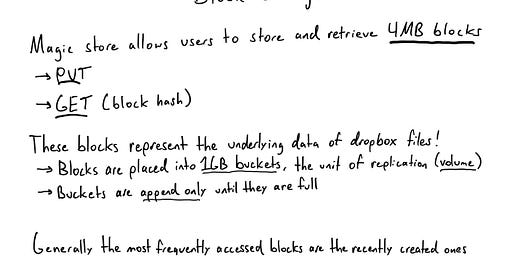 Magic store allows users to store and retrieve 4MB blocks
→ PUT
→ GET (block hash)
These blocks represent the underlying data of dropbox files!
→ Blocks are placed into 1GB buckets, the unit of replication (volume)
→ Buckets are append only until they are full
Generally the most frequently accessed blocks are the recently created ones